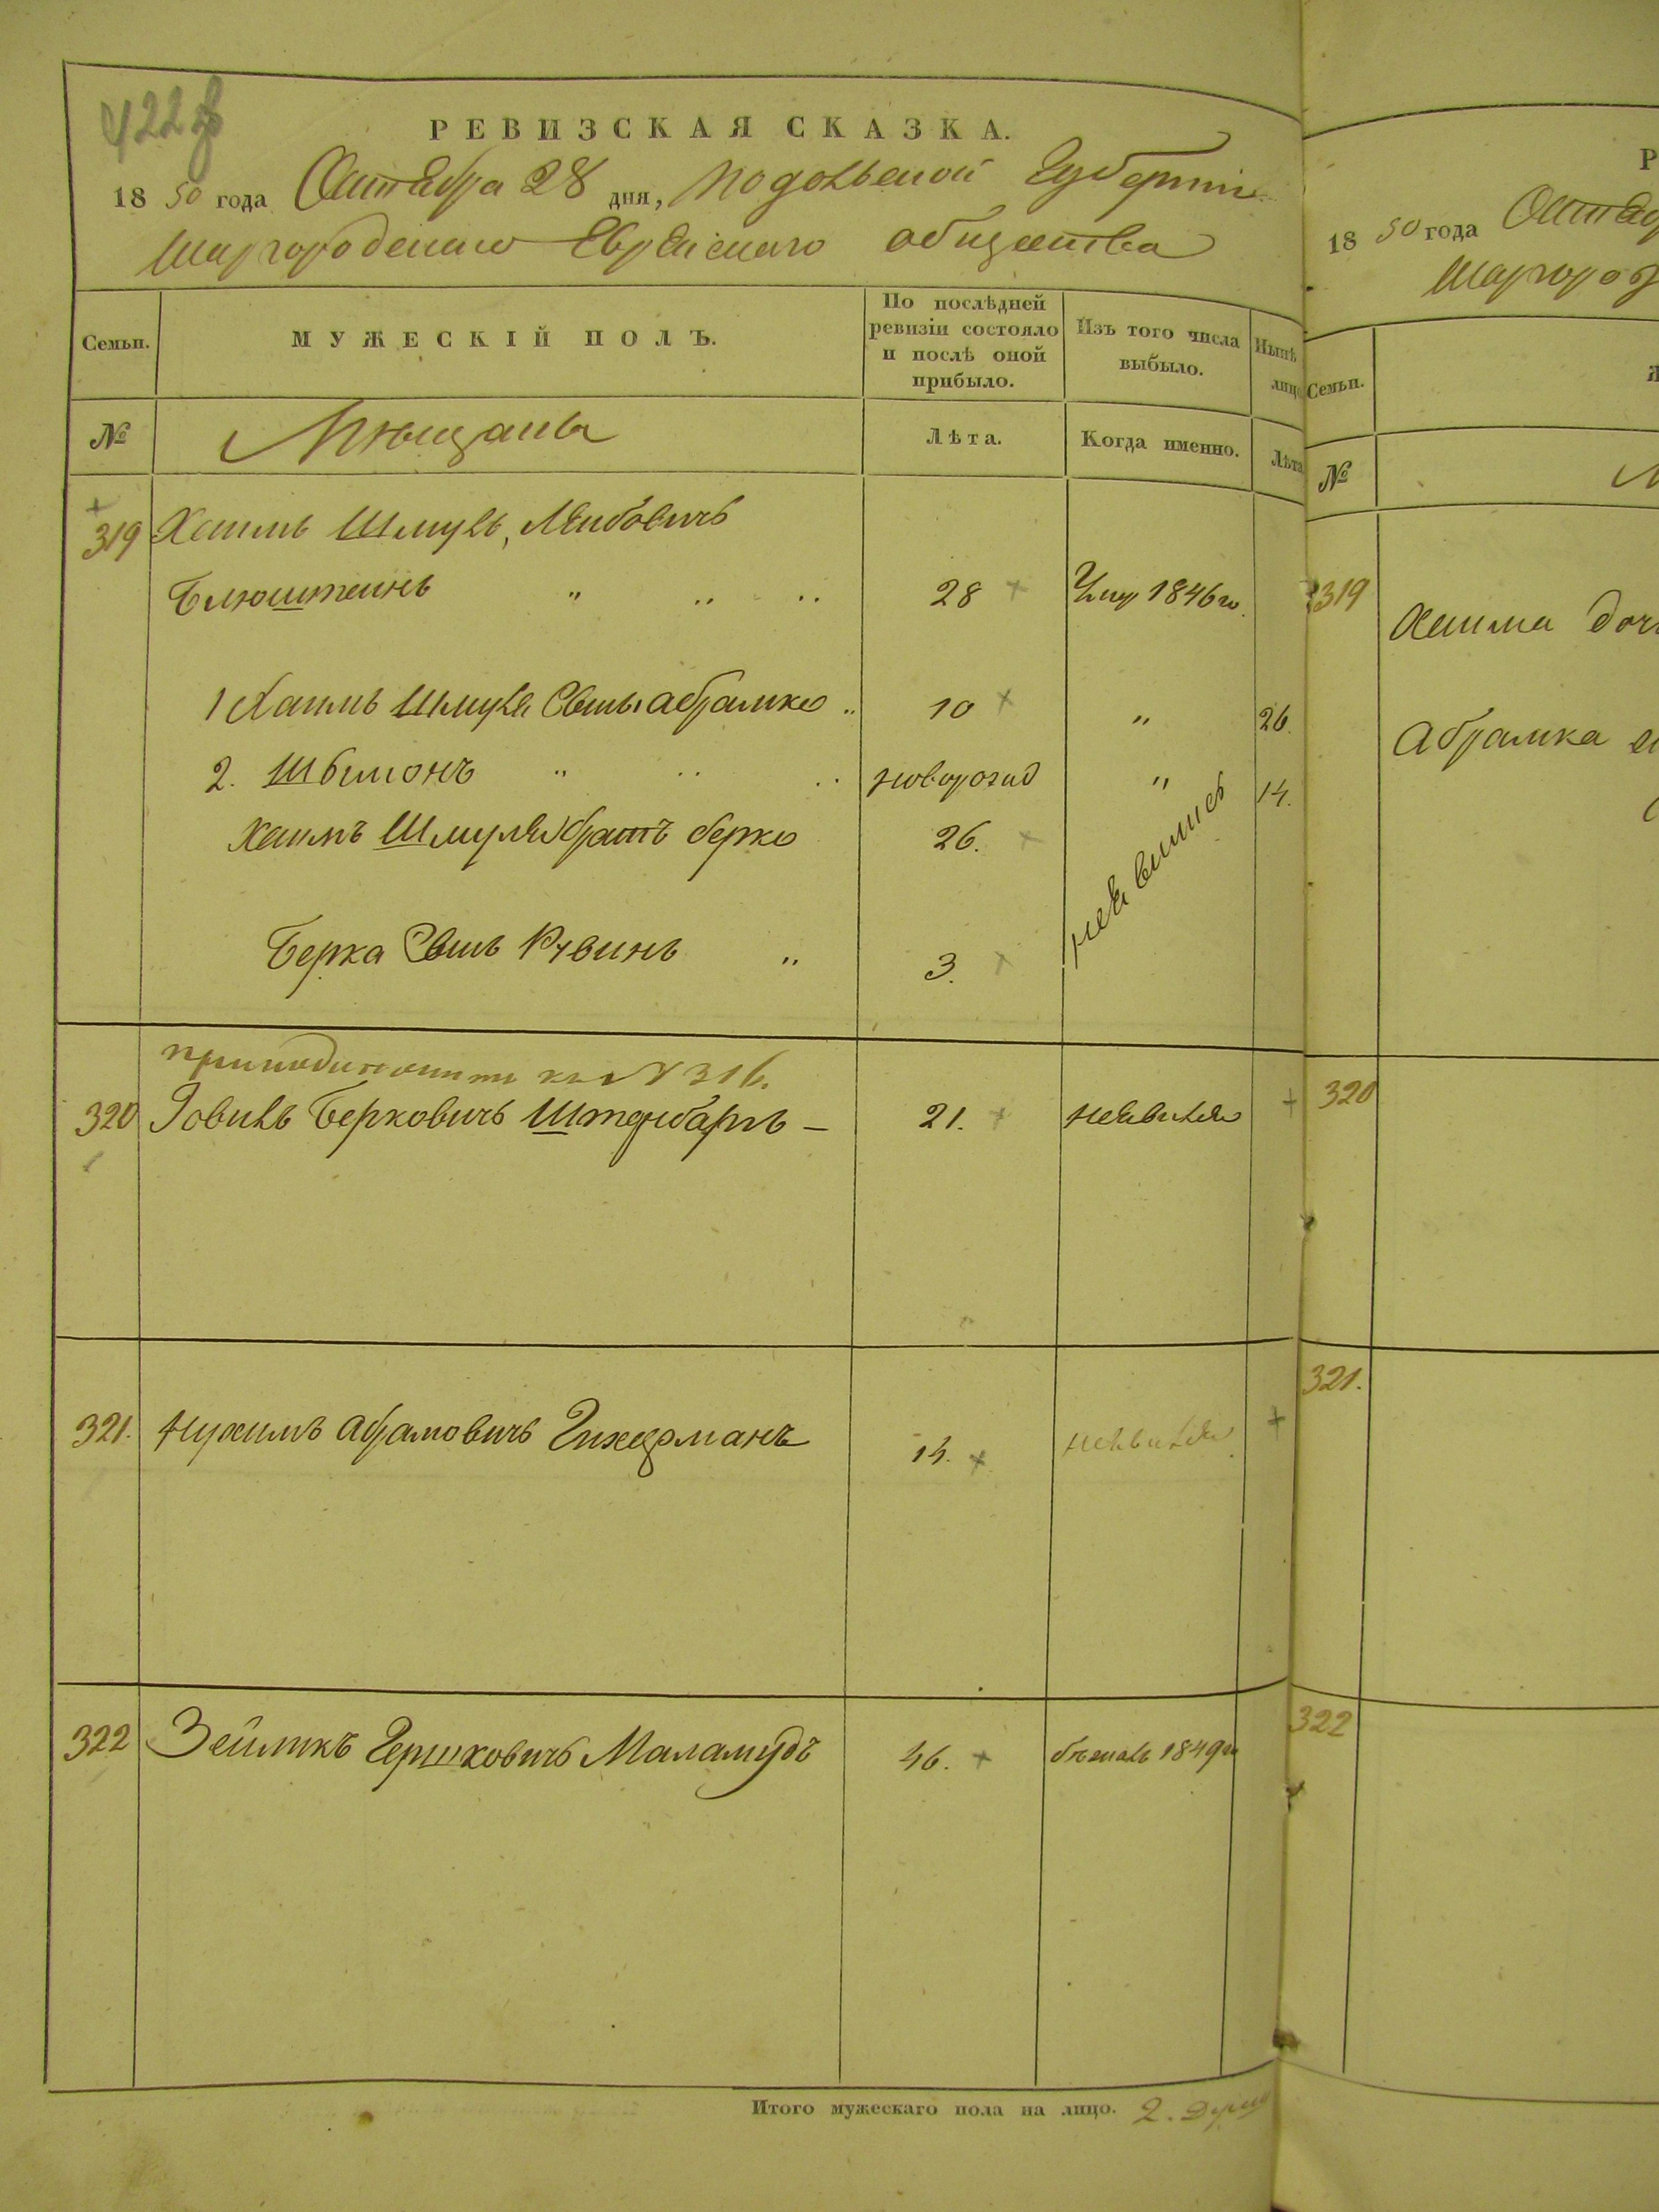 422
РЕВИЗСКАЯ СКАЗКА.
18 50 года Октября 28 дня, Подольской Губернии
Шаргородскаго Еврейскаго общества
Семьи. МУЖЕСКІЙ ПОЛЪ. По послѣдней ревизіи состояло и послѣ оной прибыло. Изъ того числа выбыло. Нынѣ лицо
№ Мѣщане Лѣта. Когда именно. Лѣта
319 Хаимъ Шмуль Лейбовичъ
Блюштейнъ " .. .. 28 Умер 1846го
1 Хаимъ Шмуля Сынъ Абрамко .. 10 " 26.
2. Шымонъ " .. .. новорожд " 14.
Хаимъ Шмуля братъ Берко 26. неявились
Берка Сынъ Рувинъ .. 3.
къ № 316.
320 Іовиль Берковичъ Штернбаргъ — 21. неявился
321. Нухимъ Абрамовичъ Гихерманъ 14. неявился
322 Зейликъ Гершковичъ Маламудъ 46. бѣжалъ 1849го
Итого мужескаго пола на лицо. 2. души
Р
18 50 года Октяб
Шаргород
Семьи.
№
319 Хаима доч
Абрамка
320
321.
322